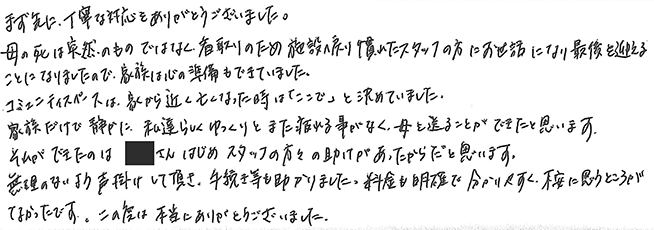 まず先に、丁寧な対応をありがとうございました。
母の死は突然のものではなく、看取りのため施設へ戻り慣れたスタッフの方にお世話になり最後を迎える
ことになりましたので、家族は心の準備もできていました。
コミュニティスペースは、家から近く亡くなった時は「ここで」と決めていました。
家族だけで静かに、私達らしくゆっくりとまた疲れる事がなく、母を送ることができたと思います。
それができたのは さんはじめスタッフの方々の助けがあったからだと思います。
無理のないよう声掛けして頂き、手続き等も助かりました。料金も明確で分かりやすく、不安に思うところが
なかったです。この度は本当にありがとうございました。